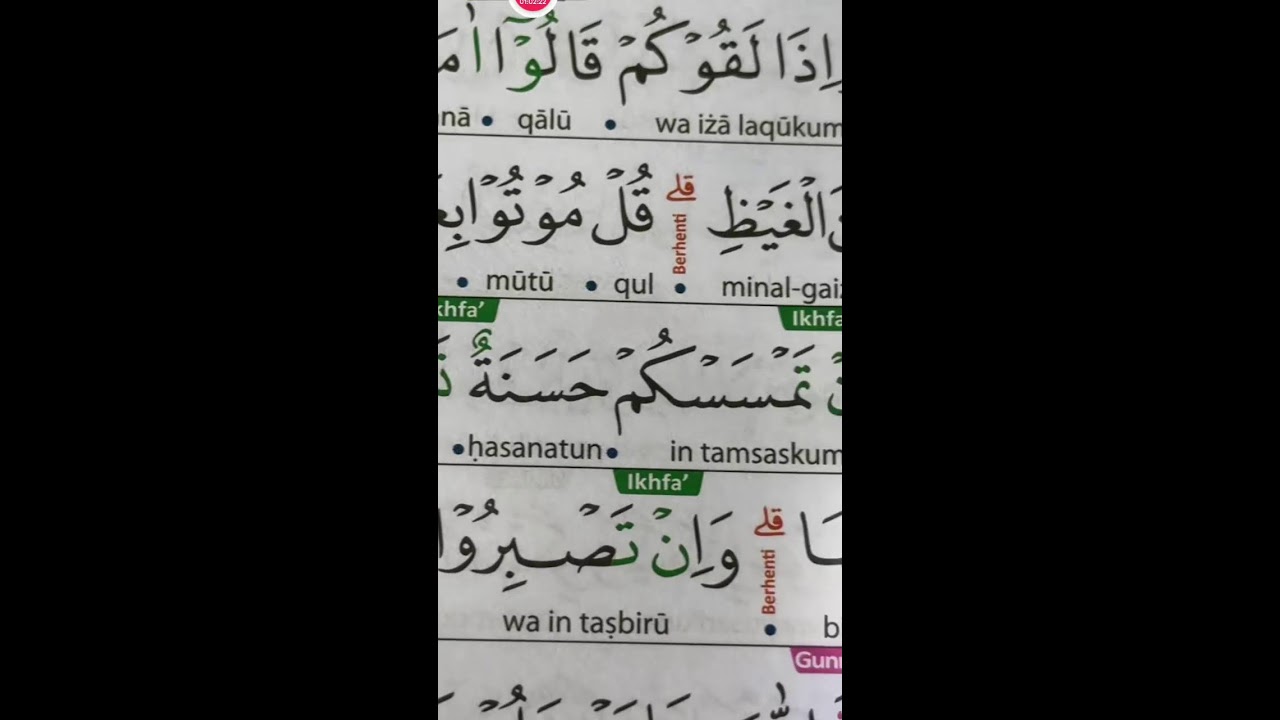 01:02:22
اِذَا لَقُوْكُمْ قَالُوْٓا اٰمَ
nā • qālū • wa iżā laqūkum
الْغَيْظِ ۗ قُلْ مُوْتُوْا بِغَ
Berhenti
• mūtū • qul • minal-gaiẓ
khfa’ Ikhfa
تَمْسَسْكُمْ حَسَنَةٌ
• ḥasanatun • in tamsaskum
Ikhfa’
قلے وَاِنْ تَصْبِرُوْا
Berhenti
wa in taṣbirū • b
Gunn